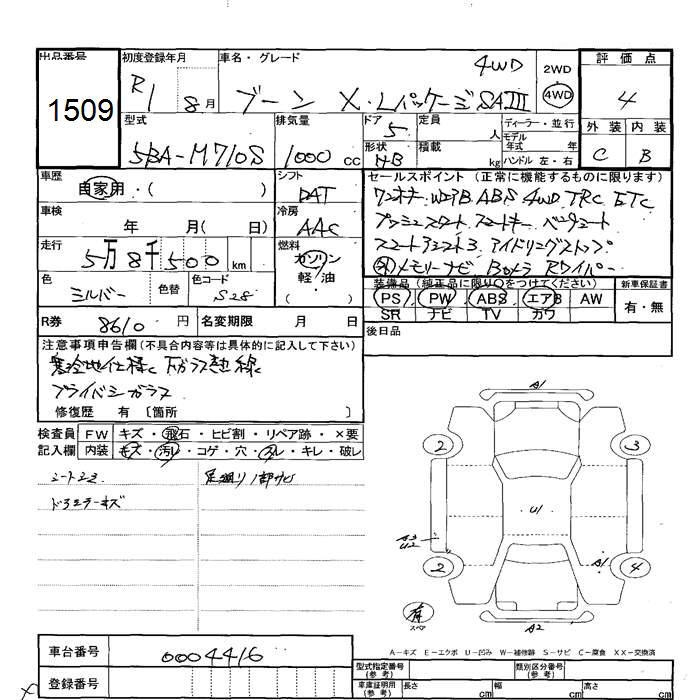 出品番号 初度登録年月 車名・グレード 評価点
1509
R1 8月 ブーン X・Lパッケージ SAⅢ 4WD 2WD 4WD 4
型式 排気量 ドア 5 定員 人 ディーラー・並行 外装 内装
5BA-M710S 1000 cc 形状 HB 積載 kg モデル年式 年 ハンドル 左・右 C B
車歴 シフト セールスポイント(正常に機能するものに限ります)
自家用・( ) DAT ワンオーナー WエアB ABS 4WD TRC ETC
車検 年 月( 日) 冷房 AAC プッシュスタート スマートキー
走行 5万8千500km 燃料 ガソリン 軽・油 ( ) スマートアシスト3 アイドリングストップ
メモリーナビ Bカメラ Rワイパー
色 シルバー 色替 色コード S28
装備品(純正品に限り○をつけてください) 新車保証書
PS PW ABS エアB AW 有・無
SR ナビ TV カワ
R券 8610円 名変期限 月 日 後日品
注意事項申告欄(不具合内容等は具体的に記入して下さい)
寒冷地仕様 Fガラス熱線
プライバシーガラス
修復歴 有 〔箇所 〕
検査員記入欄 FW キズ・飛石・ヒビ割・リペア跡・×要
内装 キズ・汚レ・コゲ・穴・スレ・キレ・破レ
シートシミ 足廻り1部サビ
ドアミラーキズ
A1
2 3
U1
A3
U2
A1
2 4
有
スペア
A2
A-キズ E-エクボ U-凹み W-補修跡 S-サビ C-腐食 XX-交換済
車台番号 0004416
登録番号
型式指定番号(参考) 類別区分番号(参考)
車庫証明用(参考) 長さ cm 幅 cm 高さ cm